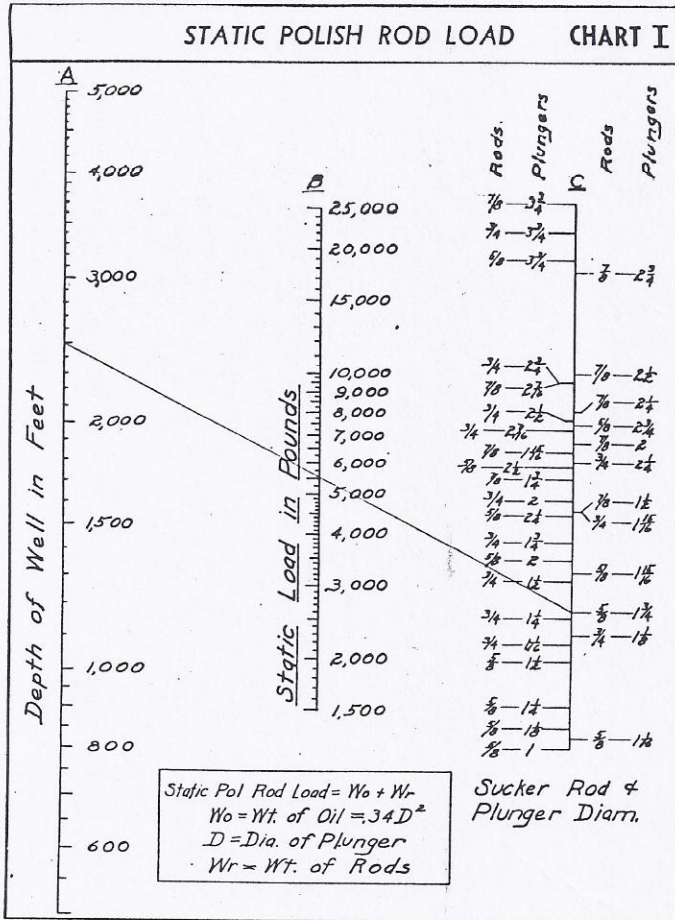 STATIC POLISH ROD LOAD CHART I
A
5,000
4,000
3,000
2,000
1,500
1,000
800
600
Depth of Well in Feet
B
25,000
20,000
15,000
10,000
9,000
8,000
7,000
6,000
5,000
4,000
3,000
2,000
1,500
Static Load in Pounds
Rods Plungers
C
Rods Plungers
7/8 — 3 3/4
3/4 — 3 3/4
5/8 — 3 3/4
3/4 — 2 3/4
7/8 — 2 7/16
3/4 — 2 1/2
3/4 — 2 7/16
5/8 — 2 1/2
7/8 — 1 3/4
3/4 — 2
5/8 — 2 1/4
3/4 — 1 3/4
5/8 — 2
3/4 — 1 1/2
3/4 — 1 1/4
5/8 — 1 1/2
5/8 — 1 1/4
5/8 — 1 1/8
5/8 — 1
7/8 — 2 3/4
7/8 — 2 1/2
7/8 — 2 1/4
5/8 — 2 3/4
7/8 — 2
3/4 — 2 1/4
7/8 — 1 1/2
3/4 — 1 15/16
5/8 — 1 15/16
5/8 — 1 3/4
3/4 — 1 1/8
Static Pol Rod Load = Wo + Wr
Wo = Wt. of Oil = .34D²
D = Dia. of Plunger
Wr = Wt. of Rods
Sucker Rod &
Plunger Diam.